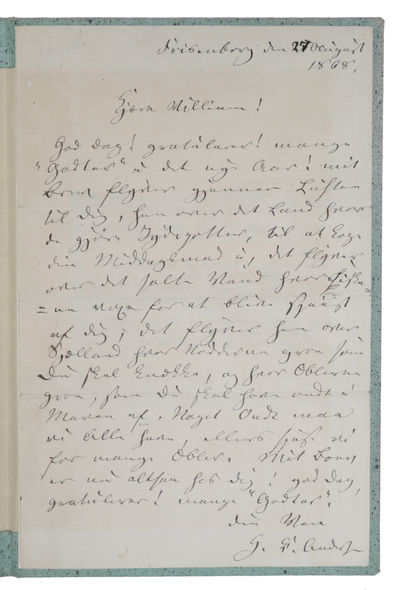 Frisenborg den 27 August
1868.
Kjære William!
God dag! gratulerer! mange
"Godter" i det nye Aar! mit
Brev flyver gjennem Luften
til Dig, hen over det Land hvor
de gjøre Jydepotter, til at koge
din Middagsmad i, det flyver
over det salte Vand hvor Fiske-
=ne voxe for at blive spiist
af Dig; det flyver hen over
Sjælland hvor Nødderne groe som
Du skal knække, og hvor Æblerne
groe, som Du skal have ondt i
Maven af. Noget Ondt maa
vi Alle have, ellers spise vi
for mange Æbler. Mit Brev
er nu altsaa hos Dig! god dag
gratulerer! mange "Godter"!
din Ven
H. C. Andersen